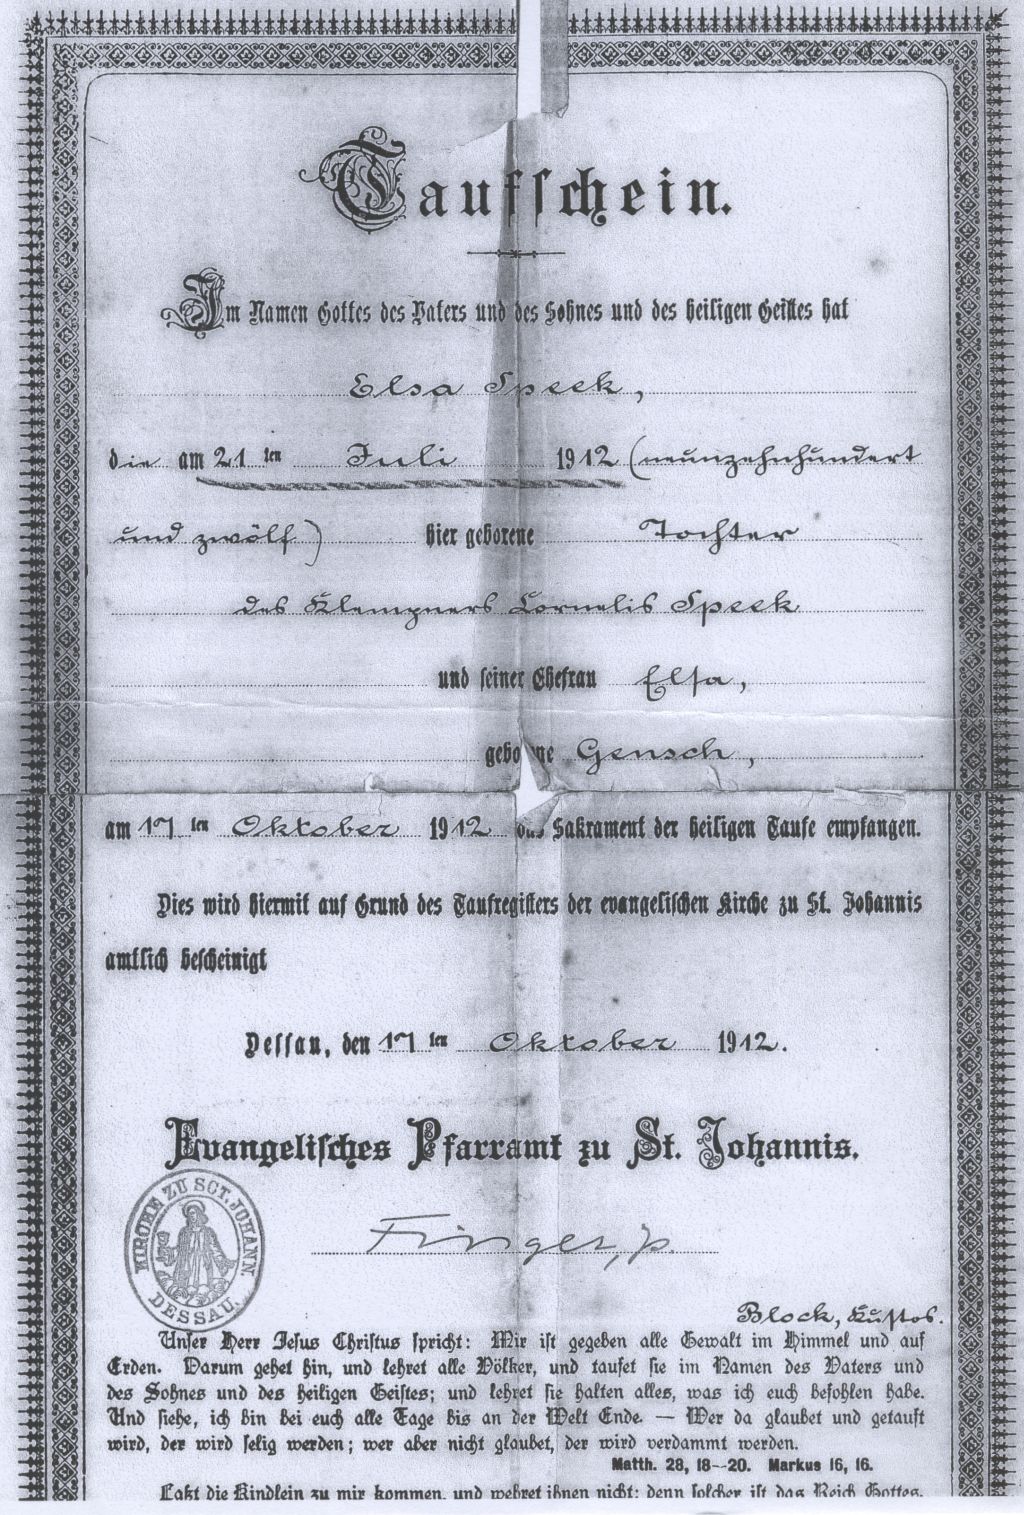 Taufschein.
Im Namen Gottes des Vaters und des Sohnes und des heiligen Geistes hat
Elsa Speek,
die am 21 ten Juli 1912 (neunzehnhundert
und zwölf) hier geborene Tochter
des Klempners Cornelis Speek
und seiner Ehefrau Elsa,
geborene Gensch,
am 17 ten Oktober 1912 das Sakrament der heiligen Taufe empfangen.
Dies wird hiermit auf Grund des Taufregisters der evangelischen Kirche zu St. Johannis
amtlich bescheinigt
Dessau, den 17 ten Oktober 1912.
Evangelisches Pfarramt zu St. Johannis.
KIRCHE ZU SCT. JOHANN. DESSAU.
Finger, p.
Block, Kustos.
Unser Herr Jesus Christus spricht: Mir ist gegeben alle Gewalt im Himmel und auf
Erden. Darum gehet hin, und lehret alle Völker, und taufet sie im Namen des Vaters und
des Sohnes und des heiligen Geistes; und lehret sie halten alles, was ich euch befohlen habe.
Und siehe, ich bin bei euch alle Tage bis an der Welt Ende. — Wer da glaubet und getauft
wird, der wird selig werden; wer aber nicht glaubet, der wird verdammt werden.
Matth. 28, 18--20. Markus 16, 16.
Laßt die Kindlein zu mir kommen, und wehret ihnen nicht; denn solcher ist das Reich Gottes.